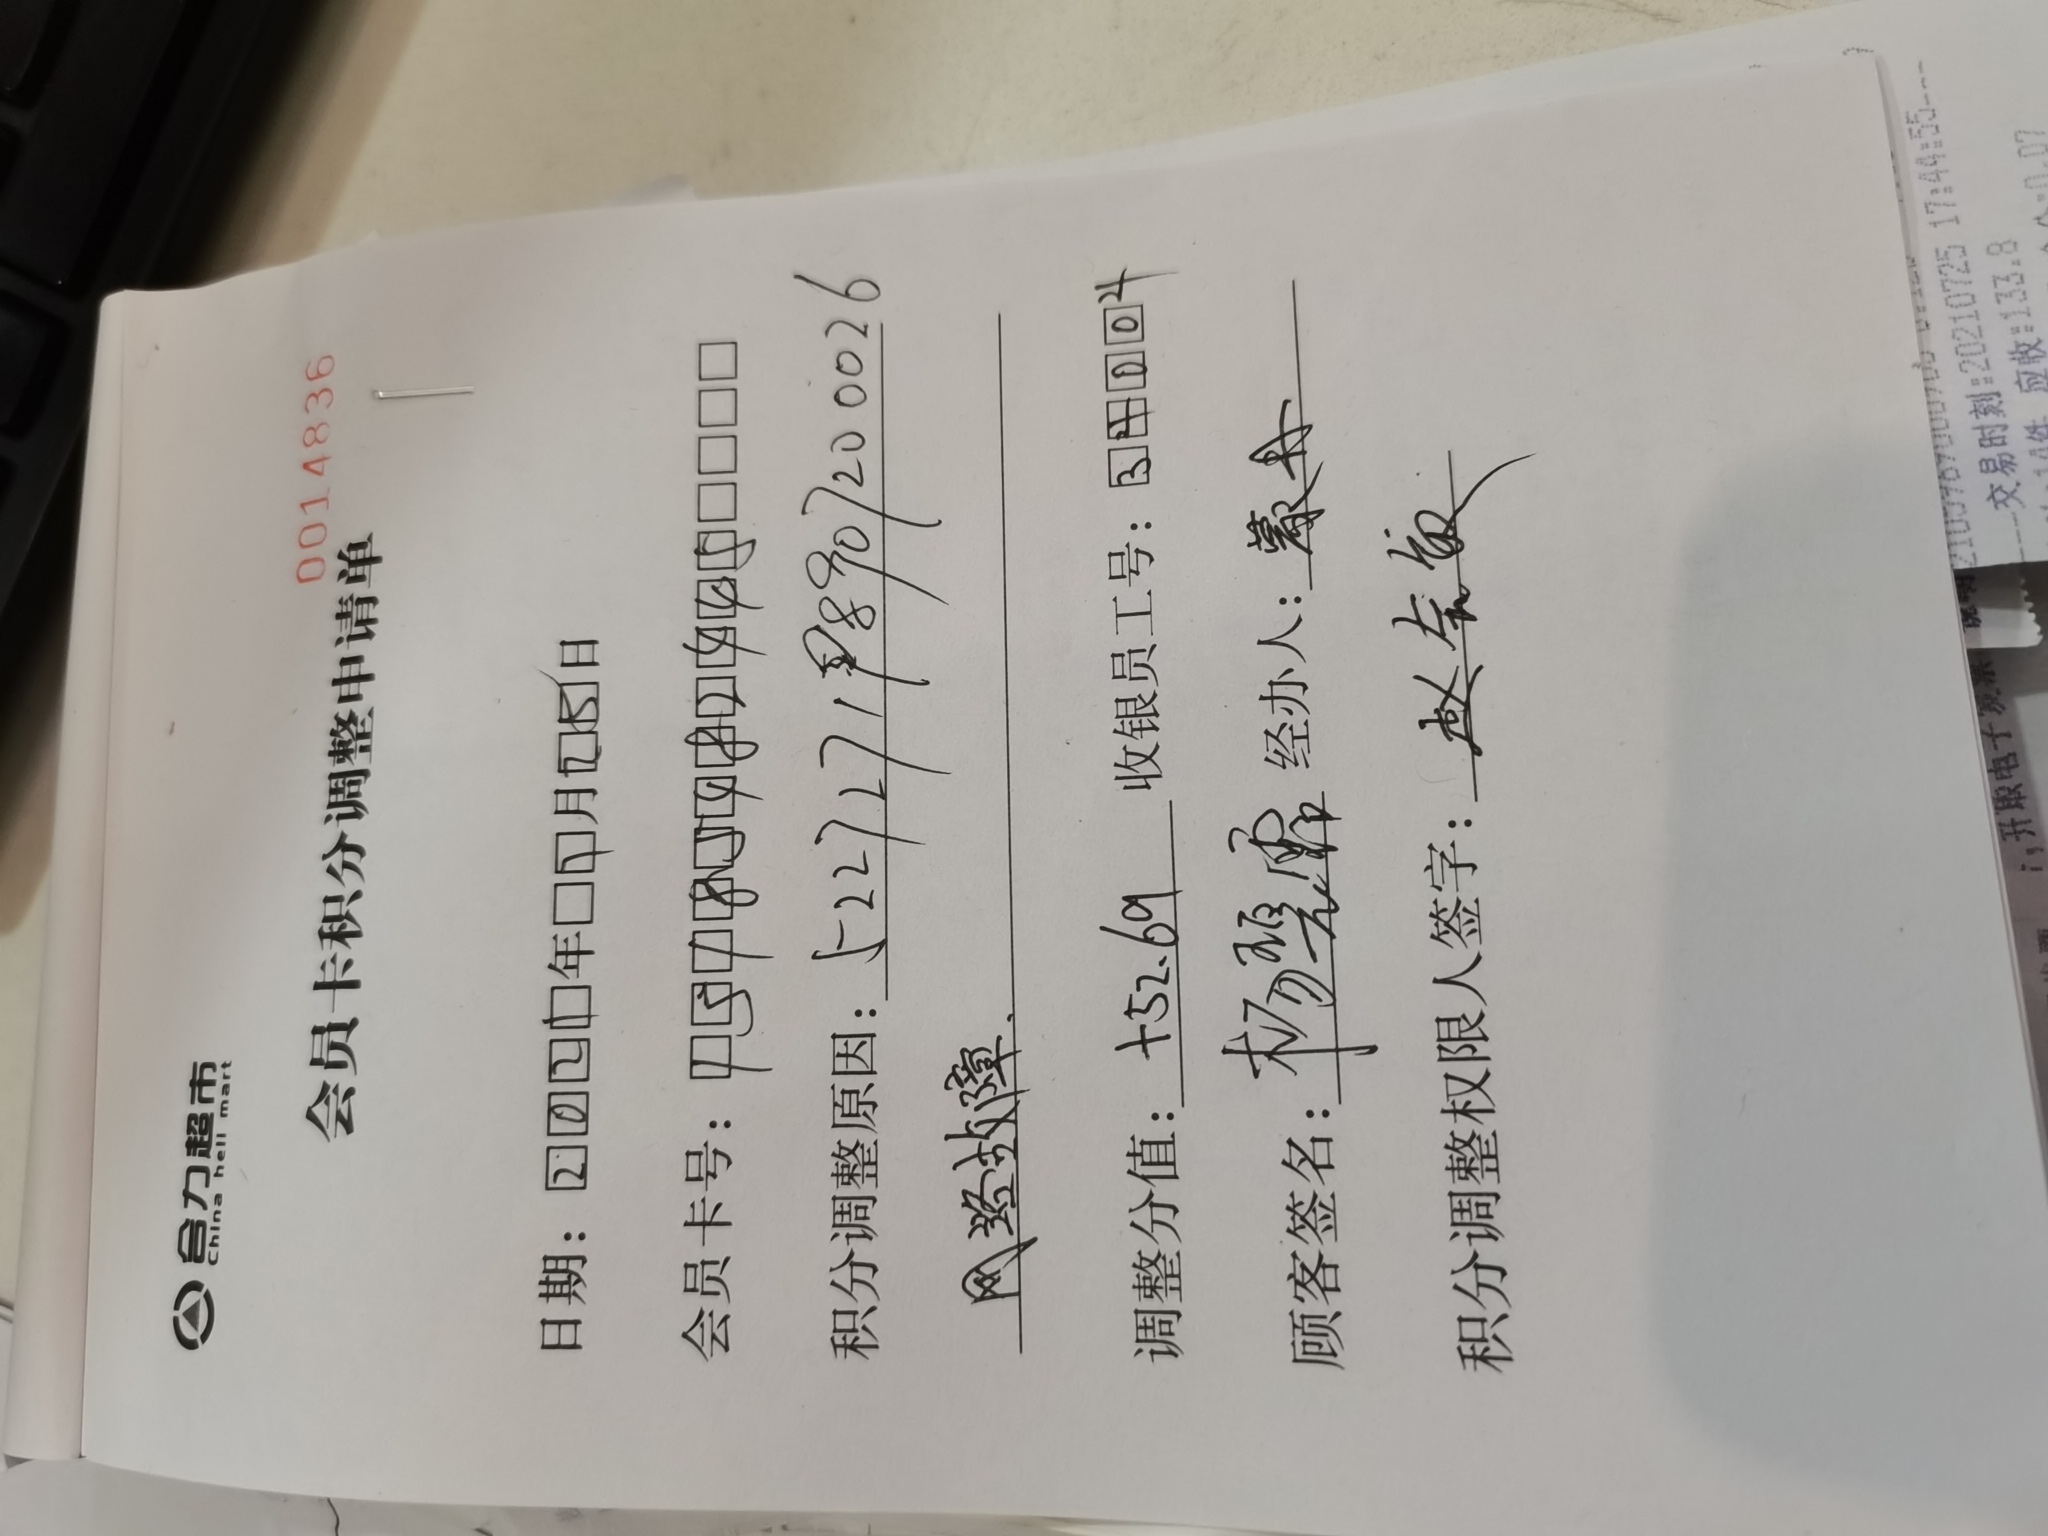 合力超市
China heli mart
00148836
会员卡积分调整申请单
日期：2021年7月25日
会员卡号：15785982445
积分调整原因：522727198907200026
网络故障.
调整分值：+52.69 收银员工号：34004
顾客签名：杨碧 经办人：
积分调整权限人签字：赵
交易时刻:20210725 17:44:55---
应收:133.8